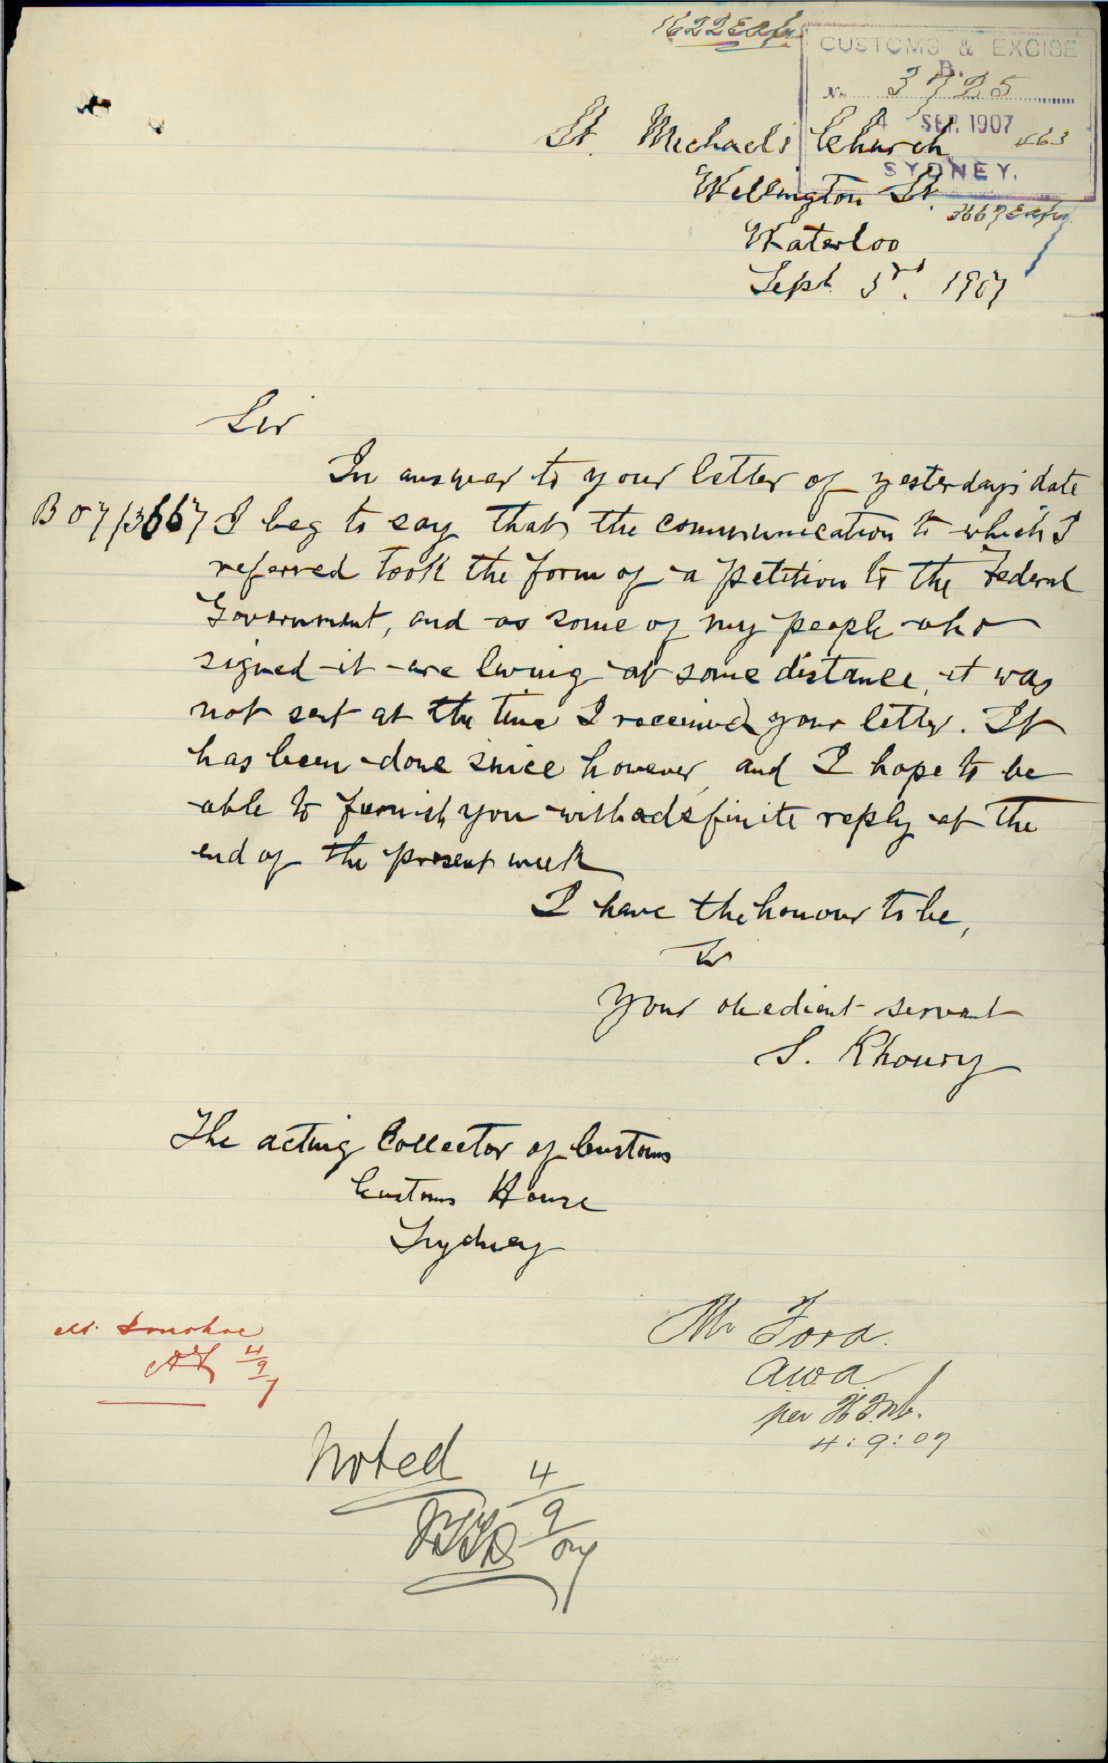 CUSTOMS & EXCISE
B.
No. 3725
4 SEP. 1907
SYDNEY.
463
3667
St. Michael's Church
Wellington St.
Waterloo
Sept. 3rd. 1907
Sir
In answer to your letter of yesterday's date
B 07/3667 I beg to say that the communication to which I
referred took the form of a petition to the Federal
Government, and as some of my people who
signed it are living at some distance, it was
not sent at the time I received your letter. It
has been done since however, and I hope to be
able to furnish you with a definite reply at the
end of the present week
I have the honour to be,
Sir
Your obedient servant
S. Khoury
The acting Collector of Customs
Customs House
Sydney
Mr. Donohoe
4/9/7
Mr Ford.
awa
per
4:9:07
Noted
4/9/07